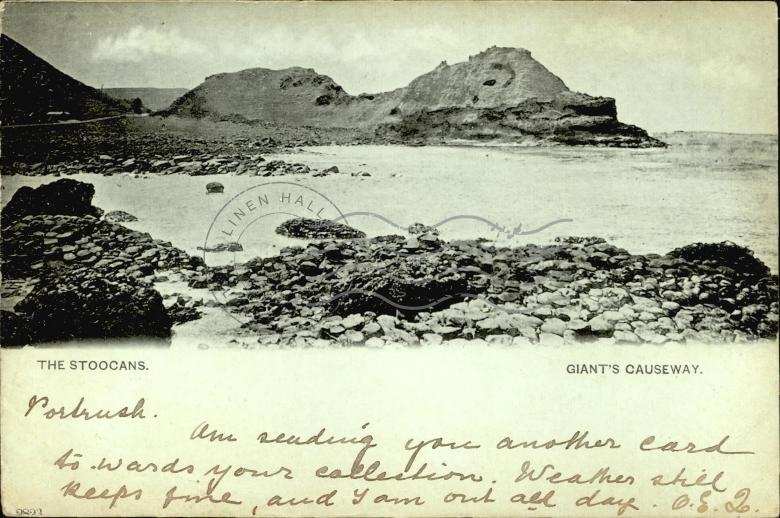 LINEN HALL
THE STOOCANS.
GIANT'S CAUSEWAY.
Portrush.
Am sending you another card
to-wards your collection. Weather still
keeps fine, and I am out all day. O.E.Q.